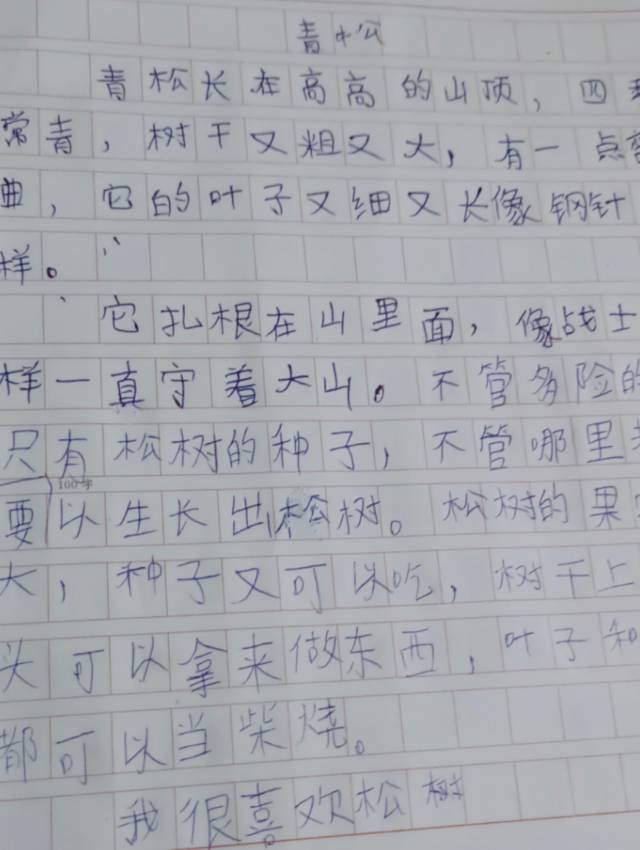 青松
青松长在高高的山顶，四
常青，树干又粗又大，有一点
曲，它的叶子又细又长像钢针
样。
它扎根在山里面，像战士
样一真守着大山。不管多险的
只有松树的种子，不管哪里
100字
要以生长出松树。松树的果
大，种子又可以吃，树干上
头可以拿来做东西，叶子和
都可以当柴烧。
我很喜欢松树